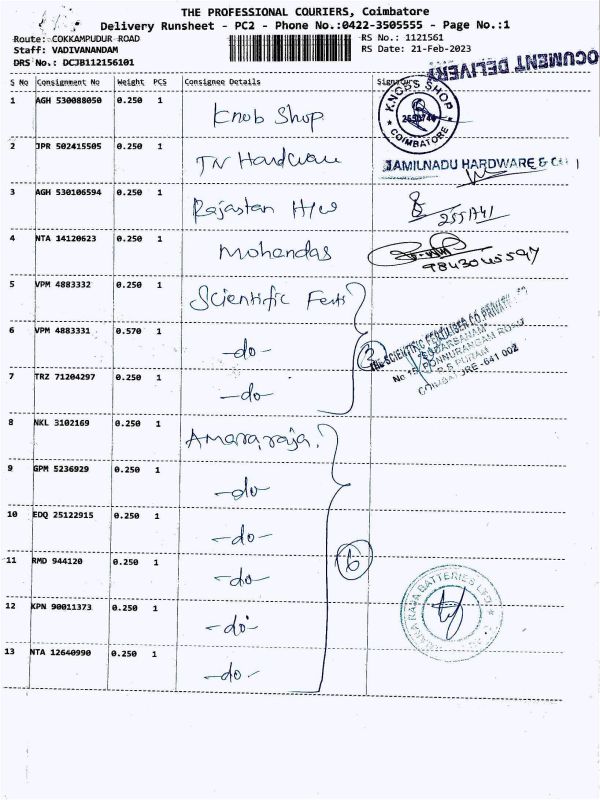 THE PROFESSIONAL COURIERS, Coimbatore
Delivery Runsheet - PC2 - Phone No.:0422-3505555 - Page No.:1
Route: COKKAMPUDUR ROAD
RS No.: 1121561
Staff: VADIVANANDAM
RS Date: 21-Feb-2023
DRS No.: DCJB112156101
DOCUMENT DELIVERY
S No Consignment No Weight PCS Consignee Details Signature
1 AGH 530088050 0.250 1 Knob Shop
KNOBS SHOP
COIMBATORE
2 JPR 502415505 0.250 1 TN Hardware
TAMILNADU HARDWARE &
3 AGH 530106594 0.250 1 Rajastan H/W
4 NTA 14120623 0.250 1 Mohandas
9843045597
5 VPM 4883332 0.250 1 Scientific Ferts
6 VPM 4883331 0.570 1 -do-
3
THE SCIENTIFIC FERTILISER CO PRIVATE
No 15, PONNURANGAM ROAD
R.S. PURAM
COIMBATORE -641 002
7 TRZ 71204297 0.250 1 -do-
8 NKL 3102169 0.250 1 Amararaja.
9 GPM 5236929 0.250 1 -do-
10 EDQ 25122915 0.250 1 -do-
11 RMD 944120 0.250 1 -do-
6
12 KPN 90011373 0.250 1 -do-
AMARA RAJA BATTERIES LTD
13 NTA 12640990 0.250 1 -do-